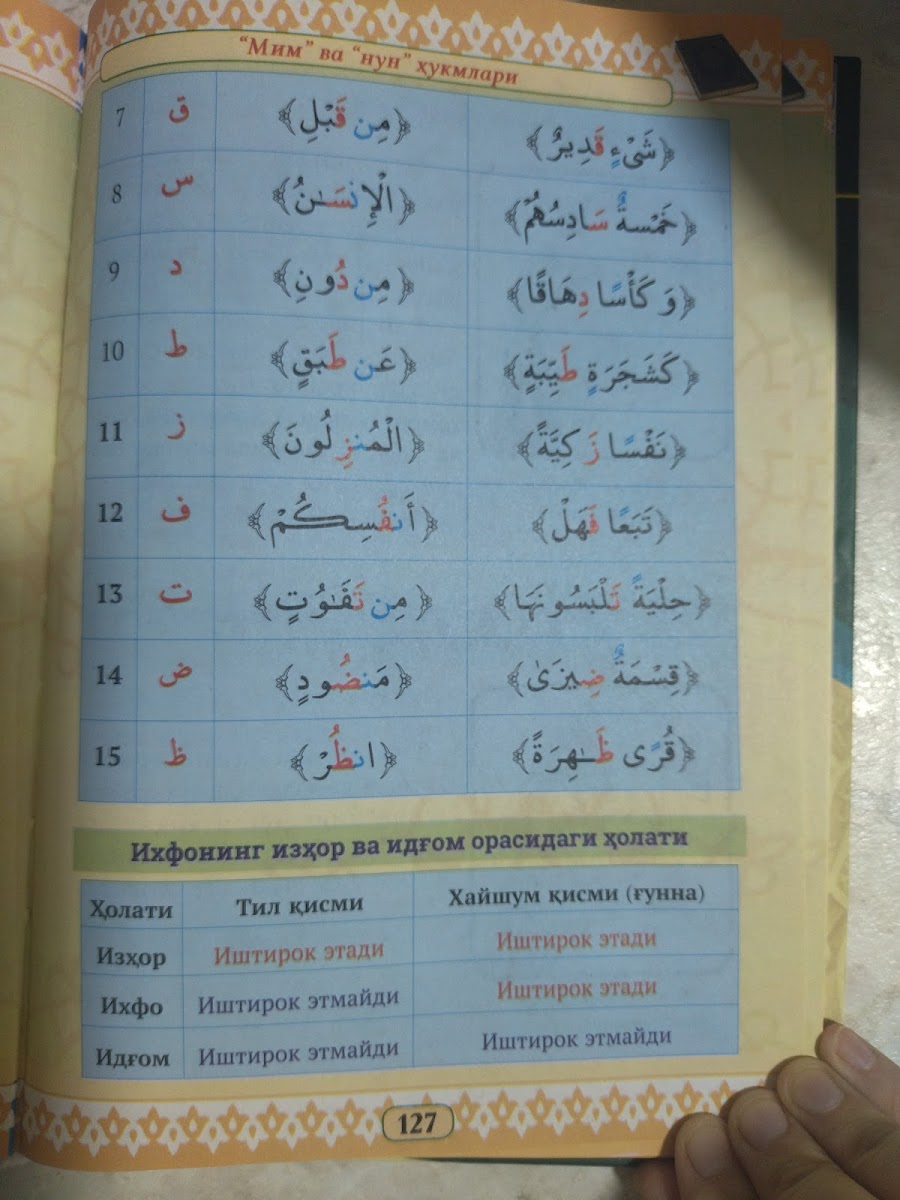 “Мим” ва “нун” ҳукмлари
7 ق ﴿مِن قَبْلِ﴾ ﴿شَىْءٍ قَدِيرٌ﴾
8 س ﴿الْإِنسَـٰنُ﴾ ﴿خَمْسةٌ سَادِسُهُمْ﴾
9 د ﴿مِن دُونِ﴾ ﴿وَ كَأْسًا دِهَاقًا﴾
10 ط ﴿عَن طَبَقٍ﴾ ﴿كَشَجَرَةٍ طَيِّبَةٍ﴾
11 ز ﴿الْمُنزِلُونَ﴾ ﴿نَفْسًا زَكِيَّةً﴾
12 ف ﴿أَنفُسِكُمْ﴾ ﴿تَبَعًا فَهَلْ﴾
13 ت ﴿مِن تَفَـٰوُتٍ﴾ ﴿حِلْيَةً تَلْبَسُونَهَا﴾
14 ض ﴿مَنضُودٍ﴾ ﴿قِسْمَةٌ ضِيزَىٰ﴾
15 ظ ﴿انظُرْ﴾ ﴿قُرًى ظَـٰهِرَةً﴾
Ихфонинг изҳор ва идғом орасидаги ҳолати
Ҳолати Тил қисми Хайшум қисми (ғунна)
Изҳор Иштирок этади Иштирок этади
Ихфо Иштирок этмайди Иштирок этади
Идғом Иштирок этмайди Иштирок этмайди
127